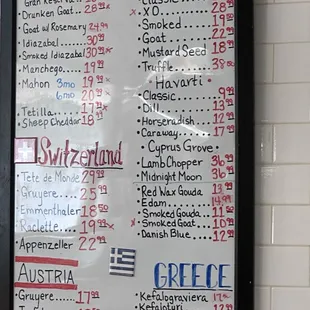 Gran Reserva
Drunken Goat 28 99
Goat w/ Rosemary 24.99
Idiazabal 30 99
Smoked Idiazabal 30 99
Manchego 19 99
Mahon 3mo 19 99
6mo 20 99
Tetilla 17 99
Sheep Cheddar 18 99
Switzerland
Tete de Monde 29 99
Gruyere 25 99
Emmenthaler 18 50
Raclette 19 99
Appenzeller 22 99
AUSTRIA
Gruyere 17 99
Classic
XO 28 99
Smoked 19 99
Goat 22 99
Mustard Seed 18 99
Truffle 38 80
Havarti
Classic 9 99
Dill 13 99
Horseradish 12 99
Caraway 17 99
Cyprus Grove
Lamb Chopper 36 99
Midnight Moon 36 99
Red Wax Gouda 13 99
Edam 14 99
Smoked Gouda 11 50
Smoked Goat 10 99
Danish Blue 12 99
GREECE
Kefalograviera 17
Kefalotyri 12 99